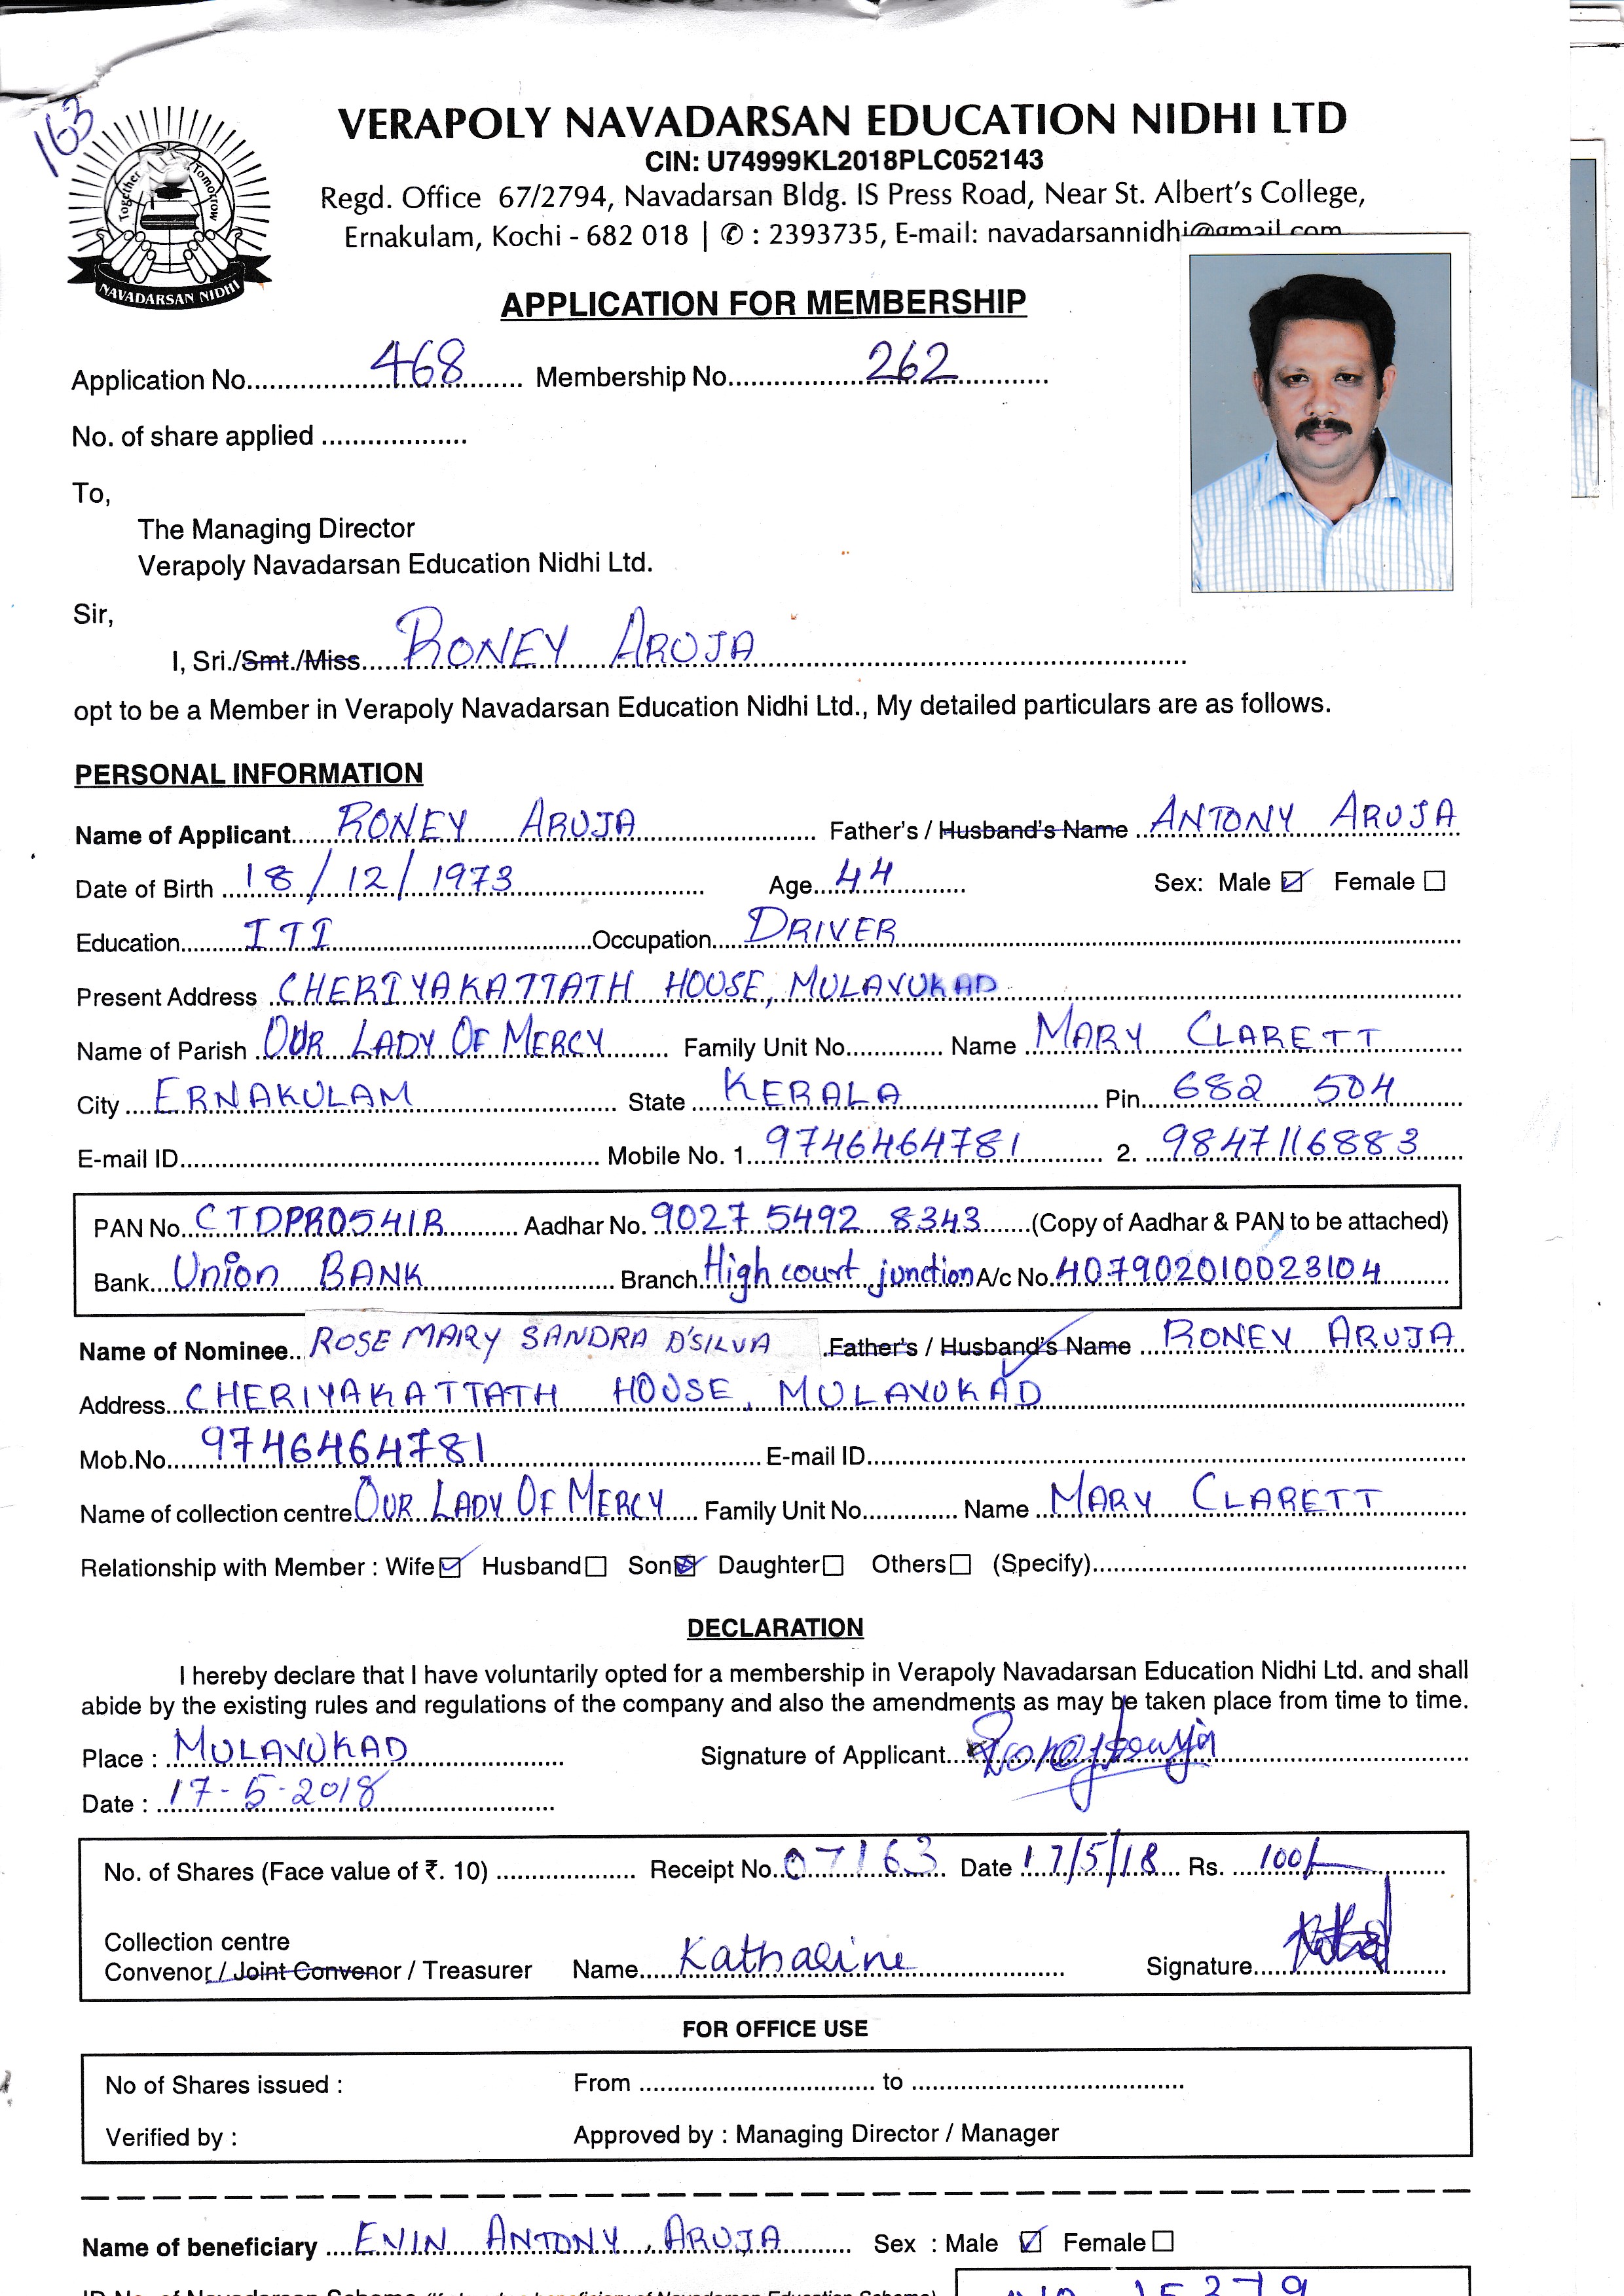 163
VERAPOLY NAVADARSAN EDUCATION NIDHI LTD
CIN: U74999KL2018PLC052143
Regd. Office 67/2794, Navadarsan Bldg. IS Press Road, Near St. Albert's College,
Ernakulam, Kochi - 682 018 | ✆ : 2393735, E-mail: navadarsannidhi@gmail.com
Together Tomorrow
NAVADARSAN NIDHI
APPLICATION FOR MEMBERSHIP
Application No. 468 Membership No. 262
No. of share applied
To,
The Managing Director
Verapoly Navadarsan Education Nidhi Ltd.
Sir,
I, Sri./Smt./Miss. RONEY ARUJA
opt to be a Member in Verapoly Navadarsan Education Nidhi Ltd., My detailed particulars are as follows.
PERSONAL INFORMATION
Name of Applicant RONEY ARUJA Father's / Husband's Name ANTONY ARUJA
Date of Birth 18/12/1973 Age 44 Sex: Male ☑ Female ☐
Education ITI Occupation DRIVER
Present Address CHERIYAKATTATH HOUSE, MULAVUKAD
Name of Parish OUR LADY OF MERCY Family Unit No. Name MARY CLARETT
City ERNAKULAM State KERALA Pin 682 504
E-mail ID Mobile No. 1. 9746464781 2. 9847116883
PAN No. CTDPR0541R Aadhar No. 9027 5492 8343 (Copy of Aadhar & PAN to be attached)
Bank Union BANK Branch High court junction A/c No. 407902010023104
Name of Nominee ROSE MARY SANDRA D'SILVA Father's / Husband's Name RONEY ARUJA
Address CHERIYAKATTATH HOUSE, MULAVUKAD
Mob.No. 9746464781 E-mail ID
Name of collection centre OUR LADY OF MERCY Family Unit No. Name MARY CLARETT
Relationship with Member : Wife ☑ Husband ☐ Son ☑ Daughter ☐ Others ☐ (Specify)
DECLARATION
I hereby declare that I have voluntarily opted for a membership in Verapoly Navadarsan Education Nidhi Ltd. and shall
abide by the existing rules and regulations of the company and also the amendments as may be taken place from time to time.
Place : MULAVUKAD Signature of Applicant
Date : 17-5-2018
No. of Shares (Face value of ₹. 10) Receipt No. 07163 Date 17/5/18 Rs. 100/-
Collection centre
Convenor / Joint Convenor / Treasurer Name Kathaline Signature
FOR OFFICE USE
No of Shares issued : From to
Verified by : Approved by : Managing Director / Manager
Name of beneficiary EVIN ANTONY ARUJA Sex : Male ☑ Female ☐